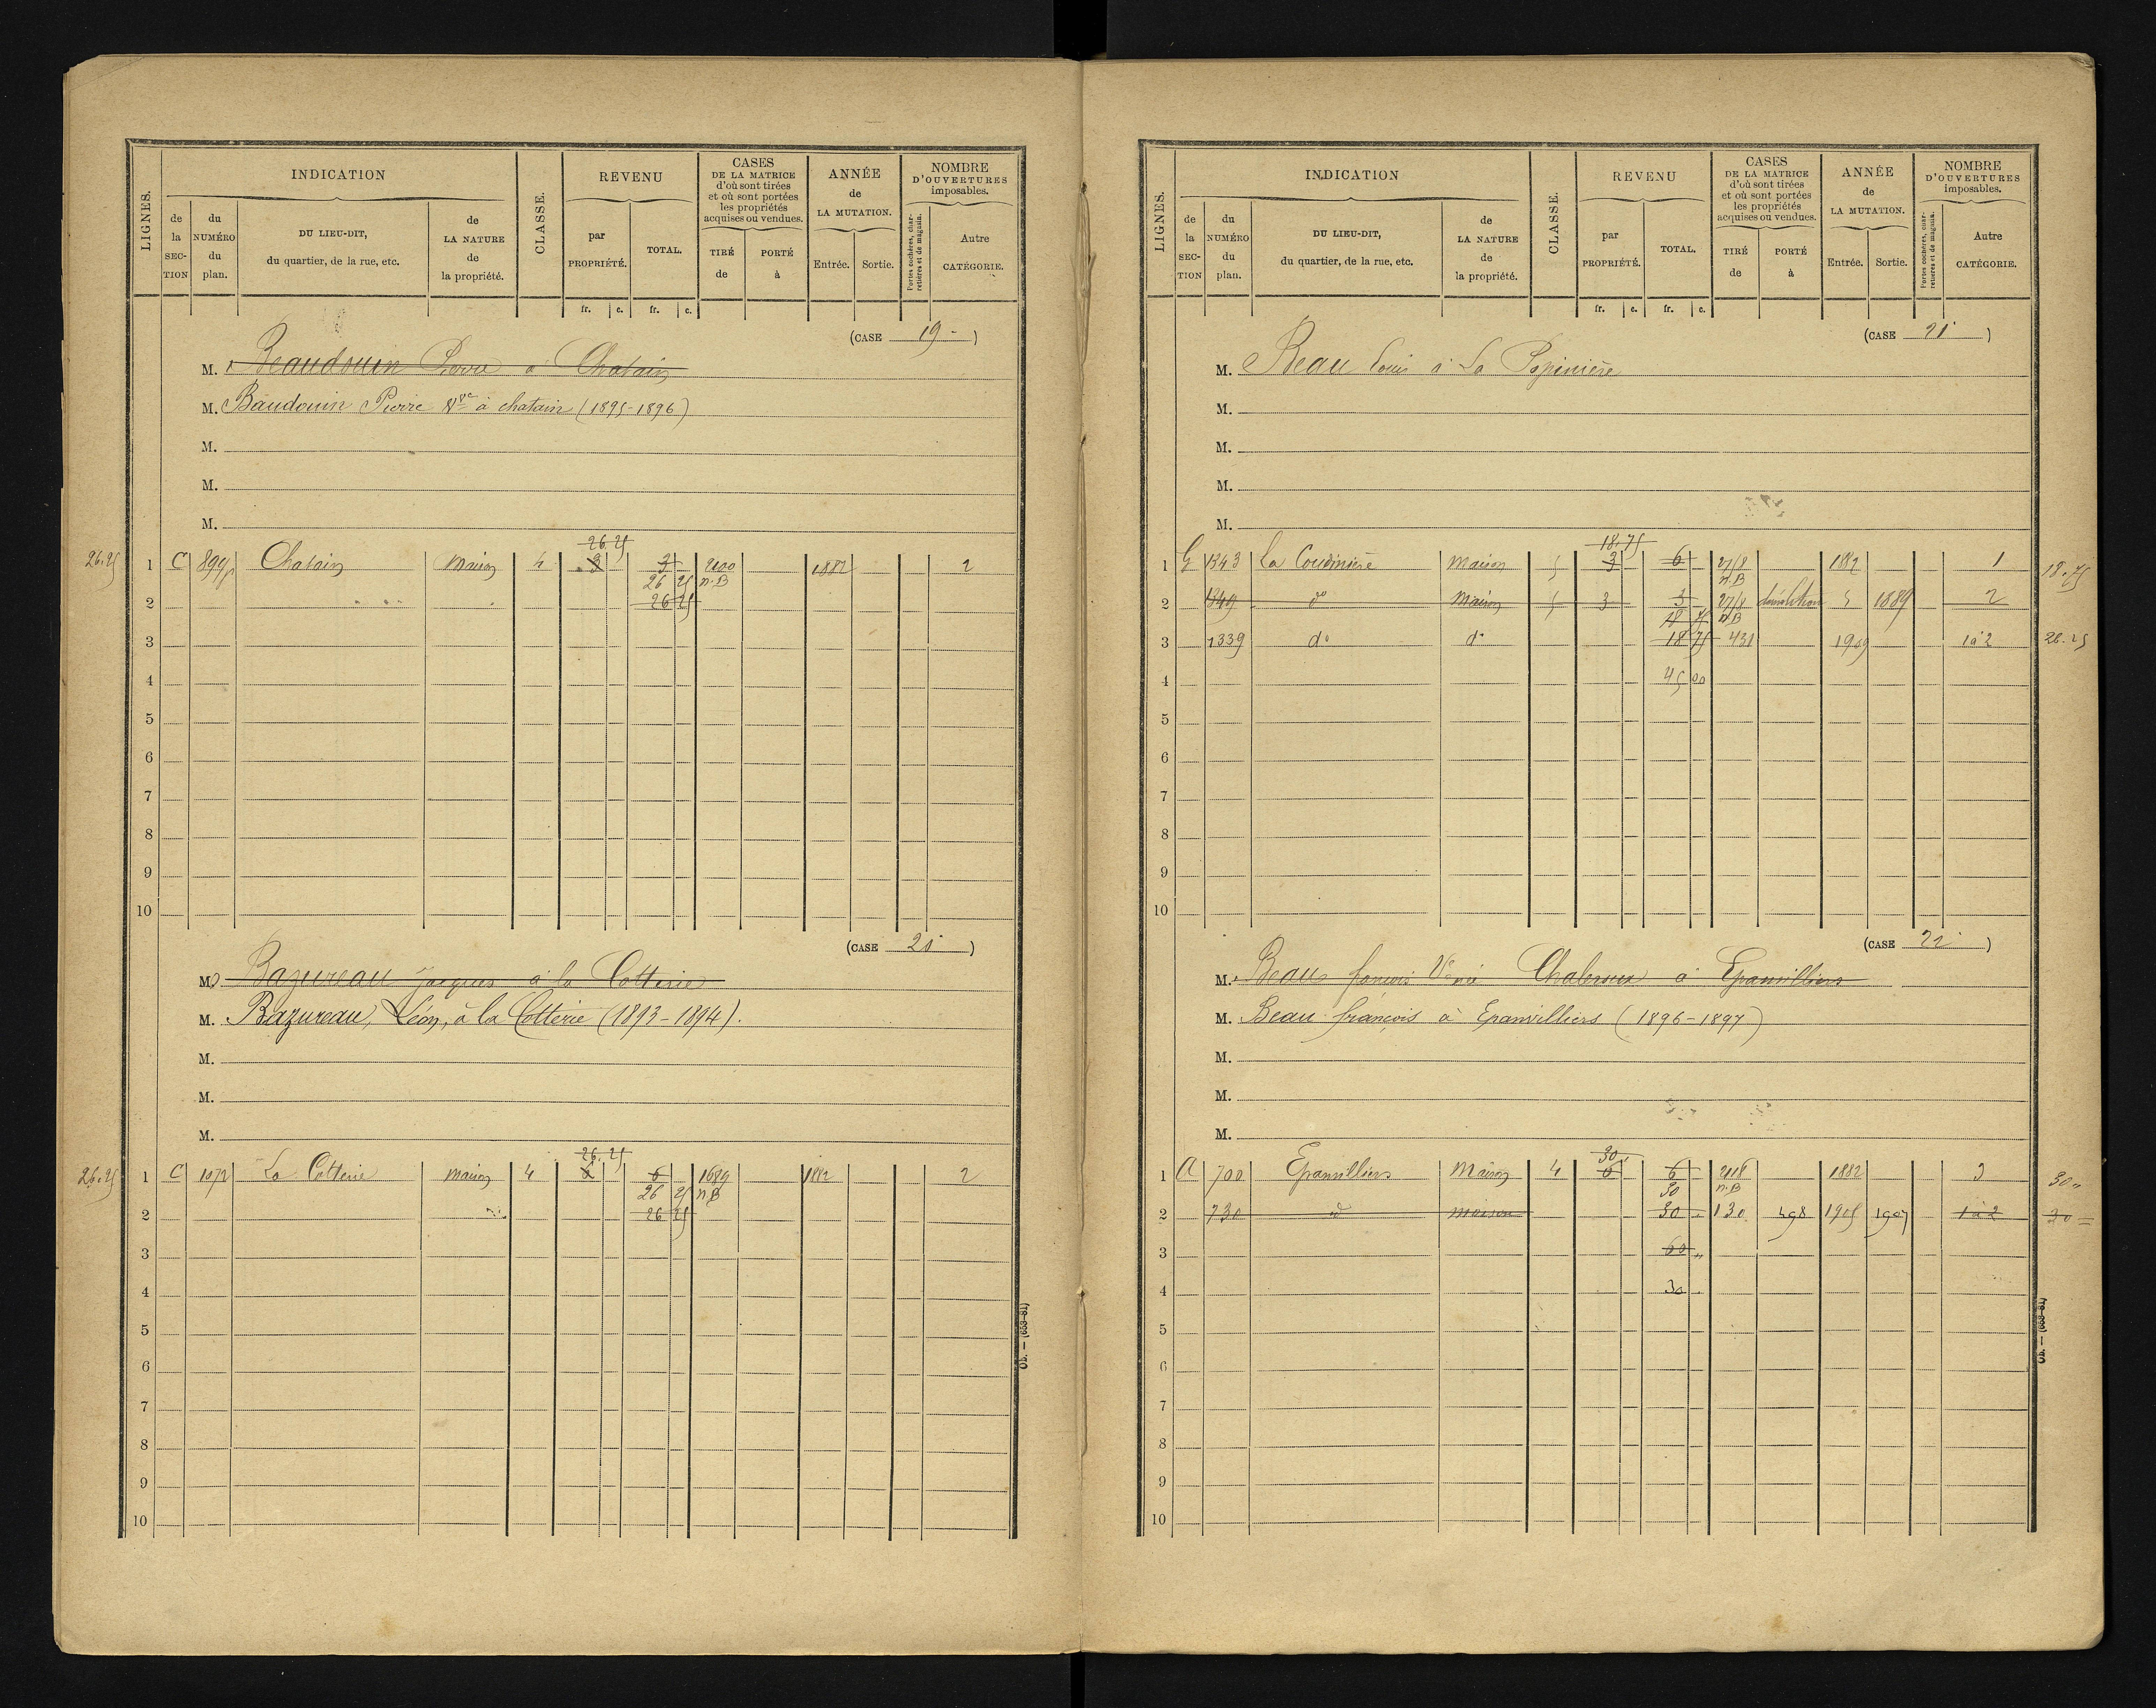 LIGNES.
INDICATION
de la SECTION
du NUMÉRO du plan.
DU LIEU-DIT, du quartier, de la rue, etc.
de LA NATURE de la propriété.
CLASSE.
REVENU
par PROPRIÉTÉ.
TOTAL.
fr. c. fr. c.
CASES DE LA MATRICE d'où sont tirées et où sont portées les propriétés acquises ou vendues.
TIRÉ de
PORTÉ à
ANNÉE de LA MUTATION.
Entrée. Sortie.
NOMBRE D'OUVERTURES imposables.
Portes cochères, charretières et de magasin.
Autre CATÉGORIE.
(CASE 19 )
M. Beaudouin Pierre à Chatain
M. Baudouin Pierre Vve à chatain (1895-1896)
M.
M.
M.
26.25
26.25 1 C 899p Chatain Maison 4 3 3 2100 1882 2
26 25 n.B
2 26 25
3
4
5
6
7
8
9
10
(CASE 20 )
M. Bazureau Jacques à la Cotterie
M. Bazureau, Léon, à la Cotterie (1893-1894).
M.
M.
M.
26.25
26.25 1 C 1072 La Cotterie Maison 4 6 6 1689 1882 2
26 25 n.B
2 26 25
3
4
5
6
7
8
9
10
Ob. — (653-81)
LIGNES.
INDICATION
de la SECTION
du NUMÉRO du plan.
DU LIEU-DIT, du quartier, de la rue, etc.
de LA NATURE de la propriété.
CLASSE.
REVENU
par PROPRIÉTÉ.
TOTAL.
fr. c. fr. c.
CASES DE LA MATRICE d'où sont tirées et où sont portées les propriétés acquises ou vendues.
TIRÉ de
PORTÉ à
ANNÉE de LA MUTATION.
Entrée. Sortie.
NOMBRE D'OUVERTURES imposables.
Portes cochères, charretières et de magasin.
Autre CATÉGORIE.
(CASE 21 )
M. Beau Louis à La Papinière
M.
M.
M.
M.
18.75
1 G 1343 La Coudinière Maison 5 3 6 27/8 1882 1 18.75
n.B
2 1349 do Maison 5 3 3 27/8 démolition 1889 2
18 75 n.B
3 1339 do do 18 75 431 1909 1à2 26.25
4 45 00
5
6
7
8
9
10
(CASE 22 )
M. Beau françois à Epanvilliers
M. Beau françois à Epanvilliers (1896-1897)
M.
M.
M.
30
1 A 700 Epanvilliers Maison 4 6 6 2118 1882 3 30 "
30 n.B
2 730 d maison 30 130 498 1905 1907 1à2 30
3 60 "
4 30
5
6
7
8
9
10
Ob. — (653-81)